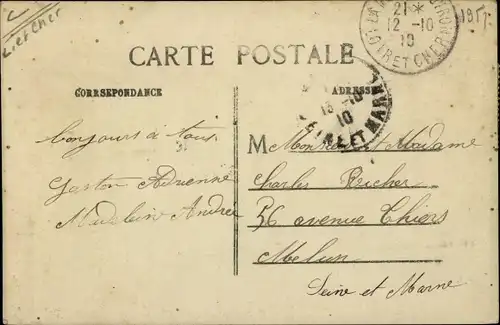 Loir et Cher
21 *
12 -10
10
LOIR ET CHER
1917
CARTE POSTALE
CORRESPONDANCE
ADRESSE
13 -10
10
SEINE ET MARNE
bonjours à tous
Gaston Adrienne
Madelein André
M Monsieur et Madame
Charles Reicher
56 avenue Thiers
Melun
Seine et Marne